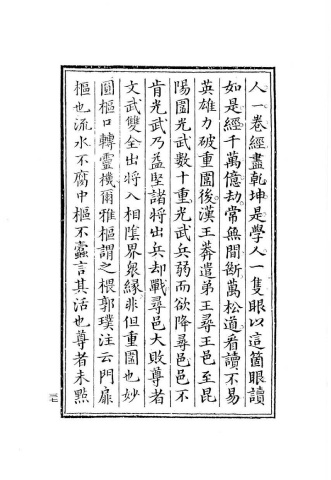 人一卷經盡乾坤是學人一隻眼以這箇眼讀
如是經千萬億劫常無間斷萬松道看讀不易
英雄力破重圍後漢王莽遣弟王尋王邑至昆
陽圍光武數十重光武兵弱而欲降尋邑邑不
肯光武乃益堅諸將出兵却戰尋邑大敗尊者
文武雙全出將入相陰界衆緣非但重圍也妙
圓樞口轉靈機爾雅樞謂之椳郭璞注云門扉
樞也流水不腐中樞不蠧言其活也尊者未㸃
三七